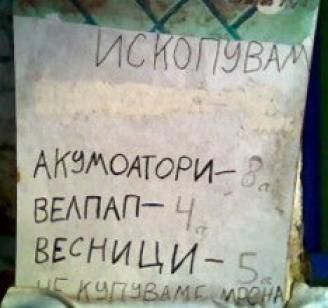 ИСКОПУВАМ
АКУМОАТОРИ - 8 а
ВЕЛПАП - 4 а
ВЕСНИЦИ - 5 а
НЕ КУПУВАМЕ